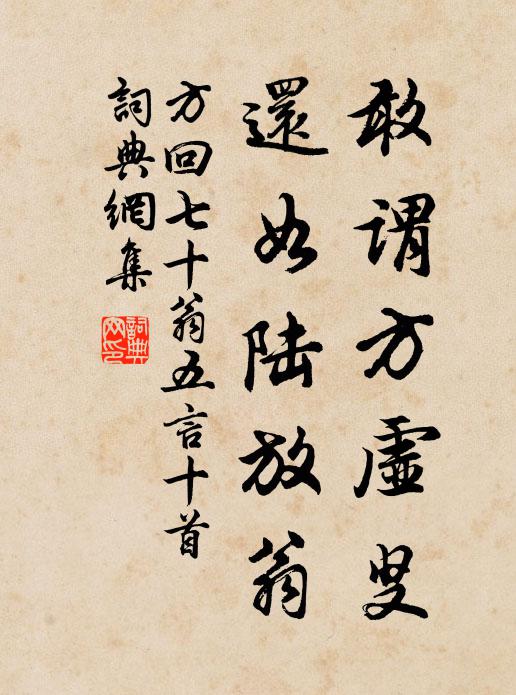 敢謂方虛叟
還如陸放翁
方回七十翁五言十首
詞典網集
詞典網印